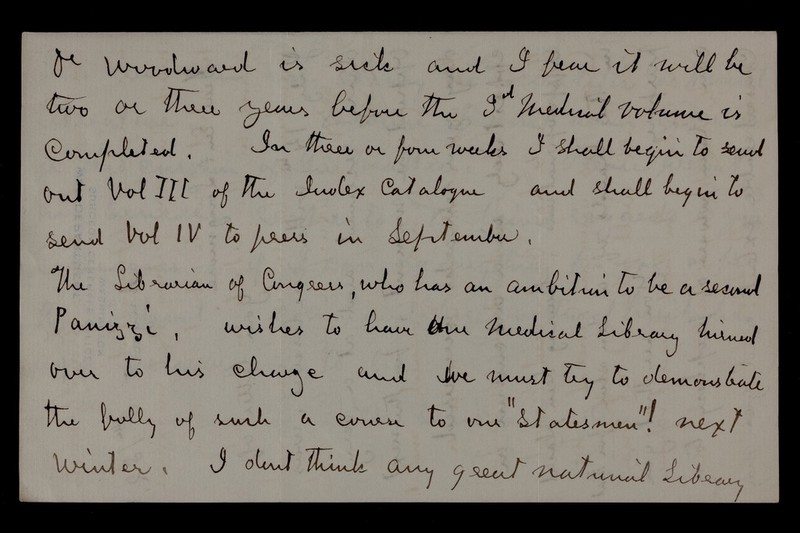 Dr Woodward is sick and I fear it will be
two or three years before the 3d Medical volume is
Completed. In three or four weeks I shall begin to send
out Vol III of the Index Catalogue and shall begin to
send Vol IV to press in September.
The Librarian of Congress, who has an ambition to be a second
Panizzi, wishes to have the Medical Library turned
over to his charge and we must try to demonstrate
the folly of such a course to our "Statesmen"! next
Winter. I dont think any great national Library